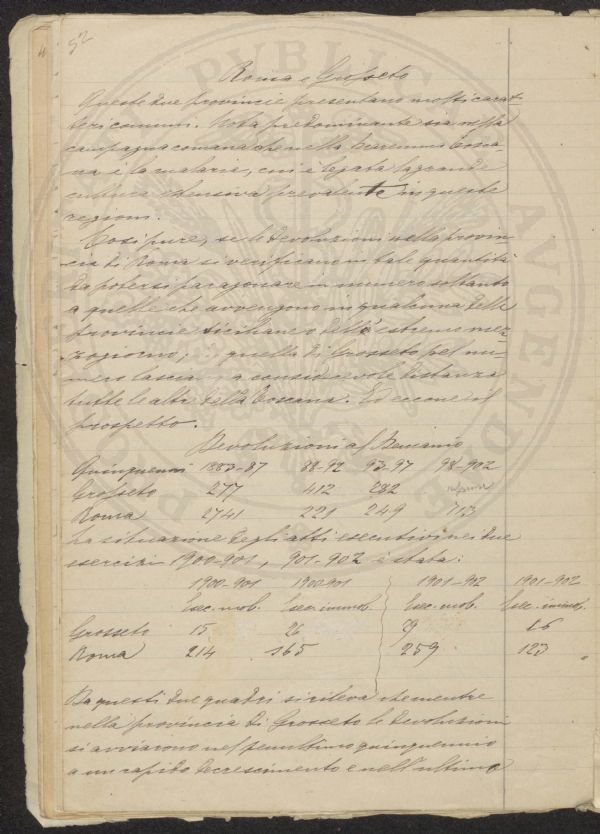 52
Roma e Grosseto
Queste due provincie presentano molti carat-
teri comuni. Nota predominante sia nella
campagna romana che nella Maremma tosca-
na è la malaria, cui è legata la grande
cultura estensiva prevalente in queste
regioni.
Così pure, se le devoluzioni nella provin-
cia di Roma si verificano in tale quantità
da potersi paragonare in numero soltanto
a quelle che avvengono in qualcuna delle
provincie siciliane o dell'estremo mez-
zogiorno, quella di Grosseto pel nu-
mero lascia a considerevole distanza
tutte le altre della Toscana. Ed eccone il
prospetto.
Devoluzioni al Demanio
Quinquenni 1883-87 88-92 93-97 98-902
Grosseto 277 412 282
Roma 2741 221 249 713
La situazione degli atti esecutivi nei due
esercizi 1900-901, 901-902 è stata:
1900-901 1900-901 1901-902 1901-902
Esec. mob. Esec. immob. Esec. mob. Esec. immob.
Grosseto 15 26 79 16
Roma 214 165 259 123
Da questi due quadri si rileva che mentre
nella provincia di Grosseto le devoluzioni
si avviarono nel penultimo quinquennio
a un rapido decrescimento e nell'ultimo